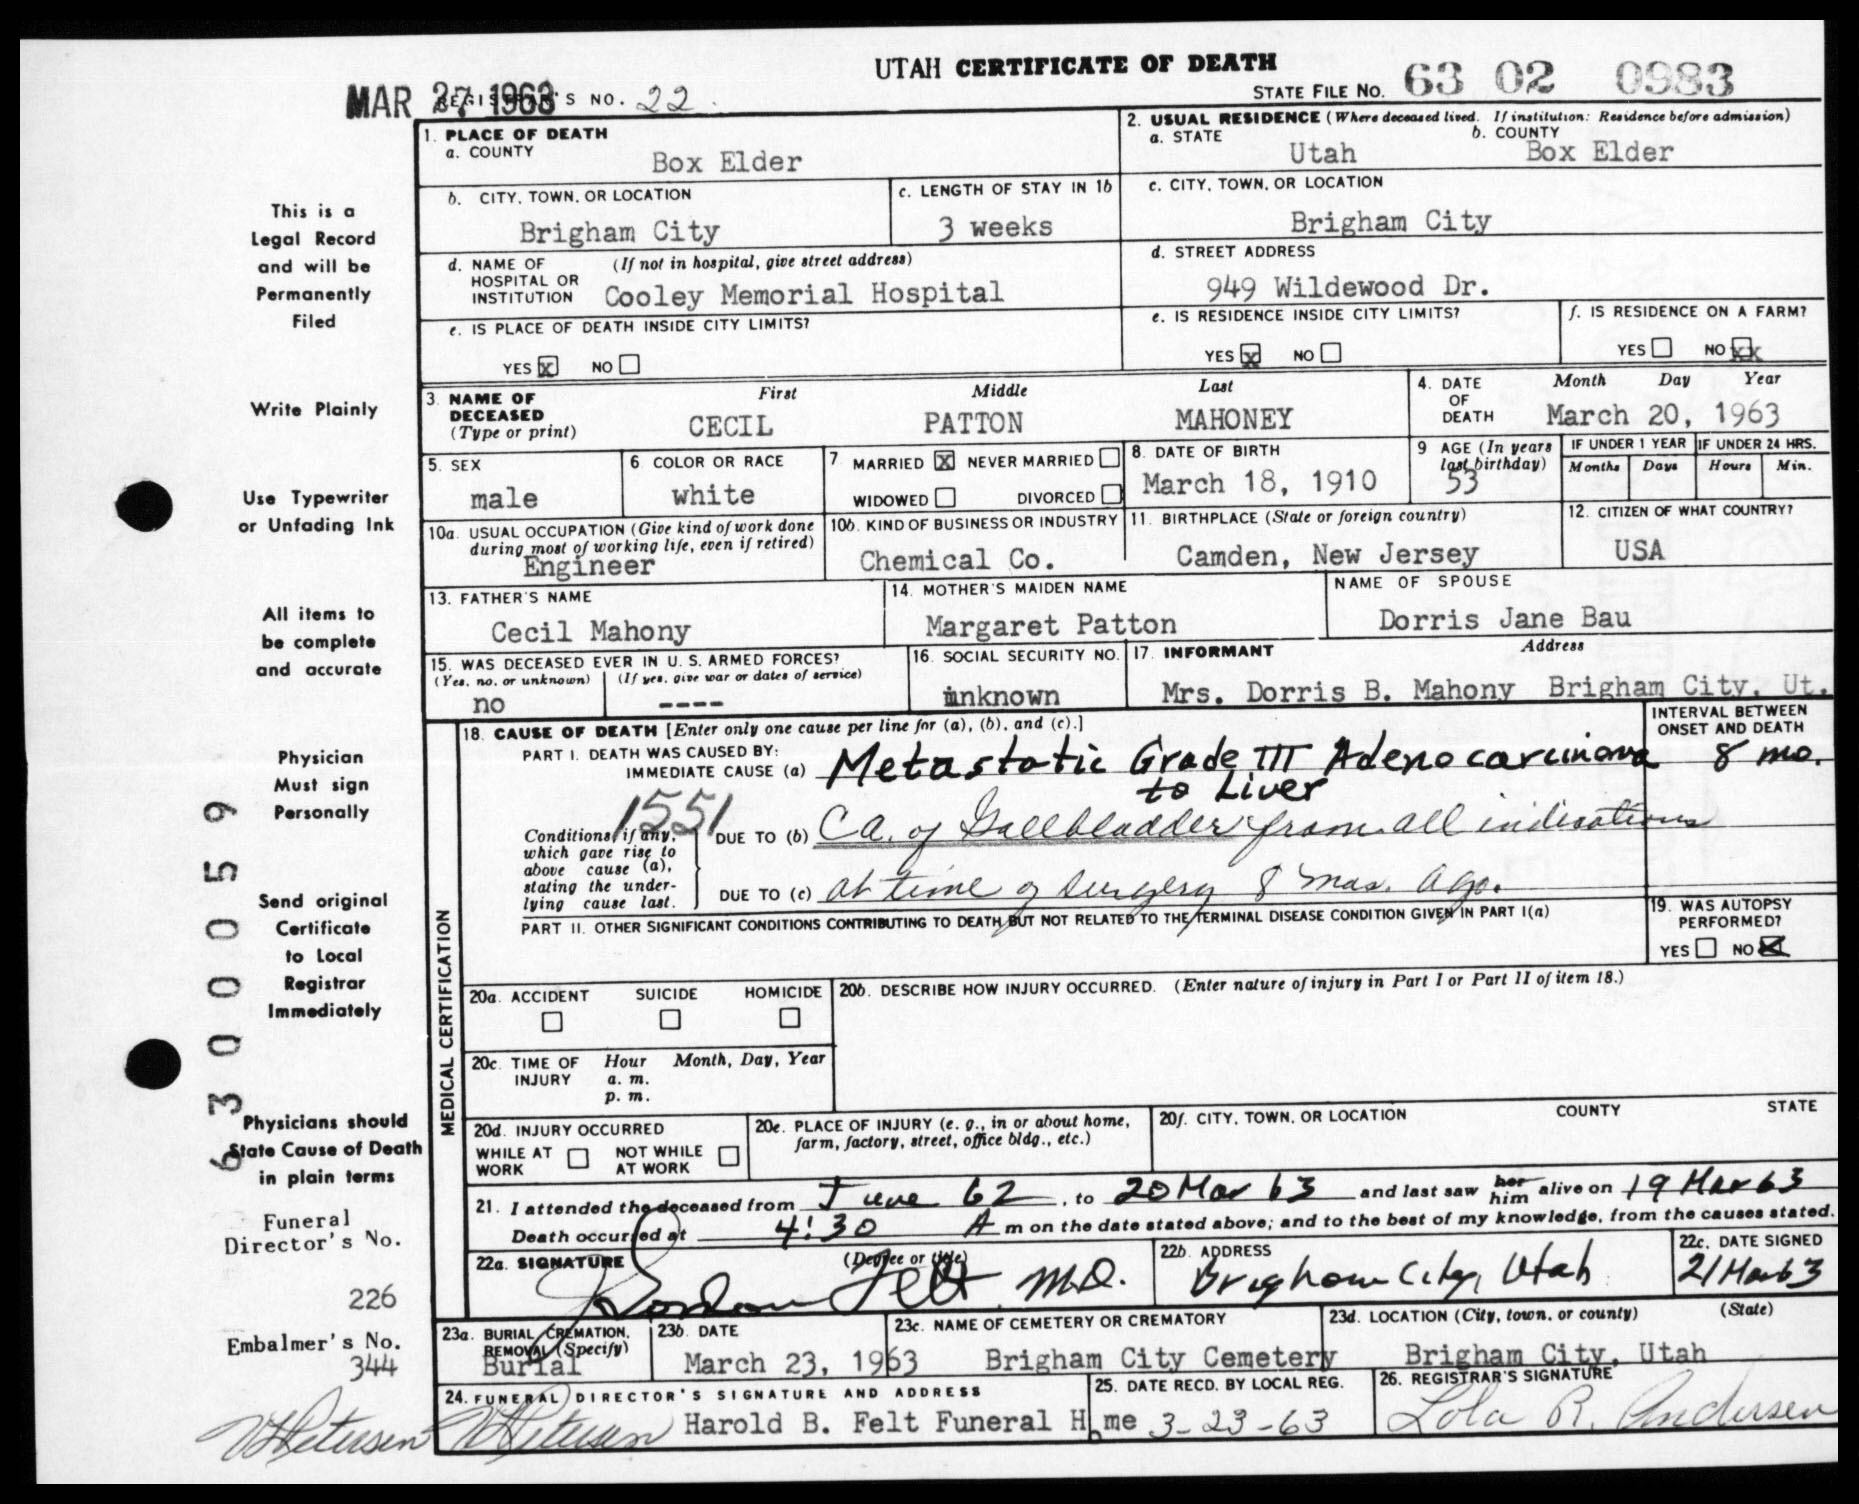 UTAH CERTIFICATE OF DEATH
MAR 27 1963 REGISTRAR'S NO. 22
STATE FILE NO. 63 02 0983
This is a Legal Record and will be Permanently Filed
Write Plainly
Use Typewriter or Unfading Ink
All items to be complete and accurate
Physician Must sign Personally
Send original Certificate to Local Registrar Immediately
Physicians should State Cause of Death in plain terms
63000059
Funeral Director's No.
226
Embalmer's No.
344
1. PLACE OF DEATH
a. COUNTY
Box Elder
2. USUAL RESIDENCE (Where deceased lived. If institution: Residence before admission)
a. STATE b. COUNTY
Utah Box Elder
b. CITY, TOWN, OR LOCATION
Brigham City
c. LENGTH OF STAY IN 1b
3 weeks
c. CITY, TOWN, OR LOCATION
Brigham City
d. NAME OF HOSPITAL OR INSTITUTION (If not in hospital, give street address)
Cooley Memorial Hospital
d. STREET ADDRESS
949 Wildewood Dr.
e. IS PLACE OF DEATH INSIDE CITY LIMITS?
YES X NO
e. IS RESIDENCE INSIDE CITY LIMITS?
YES X NO
f. IS RESIDENCE ON A FARM?
YES NO XX
3. NAME OF DECEASED (Type or print)
First Middle Last
CECIL PATTON MAHONEY
4. DATE OF DEATH
Month Day Year
March 20, 1963
5. SEX
male
6 COLOR OR RACE
white
7. MARRIED X NEVER MARRIED
WIDOWED DIVORCED
8. DATE OF BIRTH
March 18, 1910
9 AGE (In years last birthday)
53
IF UNDER 1 YEAR
Months Days
IF UNDER 24 HRS.
Hours Min.
10a. USUAL OCCUPATION (Give kind of work done during most of working life, even if retired)
Engineer
10b. KIND OF BUSINESS OR INDUSTRY
Chemical Co.
11. BIRTHPLACE (State or foreign country)
Camden, New Jersey
12. CITIZEN OF WHAT COUNTRY?
USA
13. FATHER'S NAME
Cecil Mahony
14. MOTHER'S MAIDEN NAME
Margaret Patton
NAME OF SPOUSE
Dorris Jane Bau
15. WAS DECEASED EVER IN U. S. ARMED FORCES?
(Yes, no, or unknown) (If yes, give war or dates of service)
no ----
16. SOCIAL SECURITY NO.
unknown
17. INFORMANT Address
Mrs. Dorris B. Mahony Brigham City, Ut.
MEDICAL CERTIFICATION
18. CAUSE OF DEATH [Enter only one cause per line for (a), (b), and (c).]
INTERVAL BETWEEN ONSET AND DEATH
PART I. DEATH WAS CAUSED BY:
IMMEDIATE CAUSE (a) Metastatic Grade III Adenocarcinoma 8 mo.
to Liver
1551
Conditions, if any, which gave rise to above cause (a), stating the underlying cause last.
DUE TO (b) Ca. of Gallbladder from all indications
DUE TO (c) at time of surgery 8 mos. ago.
PART II. OTHER SIGNIFICANT CONDITIONS CONTRIBUTING TO DEATH BUT NOT RELATED TO THE TERMINAL DISEASE CONDITION GIVEN IN PART I(a)
19. WAS AUTOPSY PERFORMED?
YES NO X
20a. ACCIDENT SUICIDE HOMICIDE
20b. DESCRIBE HOW INJURY OCCURRED. (Enter nature of injury in Part I or Part II of item 18.)
20c. TIME OF INJURY Hour Month, Day, Year
a. m.
p. m.
20d. INJURY OCCURRED
WHILE AT WORK NOT WHILE AT WORK
20e. PLACE OF INJURY (e. g., in or about home, farm, factory, street, office bldg., etc.)
20f. CITY, TOWN, OR LOCATION COUNTY STATE
21. I attended the deceased from June 62, to 20 Mar 63 and last saw her him alive on 19 Mar 63
Death occurred at 4:30 A m on the date stated above; and to the best of my knowledge, from the causes stated.
22a. SIGNATURE (Degree or title)
Gordon Felt M.D.
22b. ADDRESS
Brigham City, Utah
22c. DATE SIGNED
21 Mar 63
23a. BURIAL, CREMATION, REMOVAL (Specify)
Burial
23b. DATE
March 23, 1963
23c. NAME OF CEMETERY OR CREMATORY
Brigham City Cemetery
23d. LOCATION (City, town, or county) (State)
Brigham City, Utah
24. FUNERAL DIRECTOR'S SIGNATURE AND ADDRESS
Harold B. Felt Funeral Home
25. DATE RECD. BY LOCAL REG.
3-23-63
26. REGISTRAR'S SIGNATURE
Lola R. Andersen